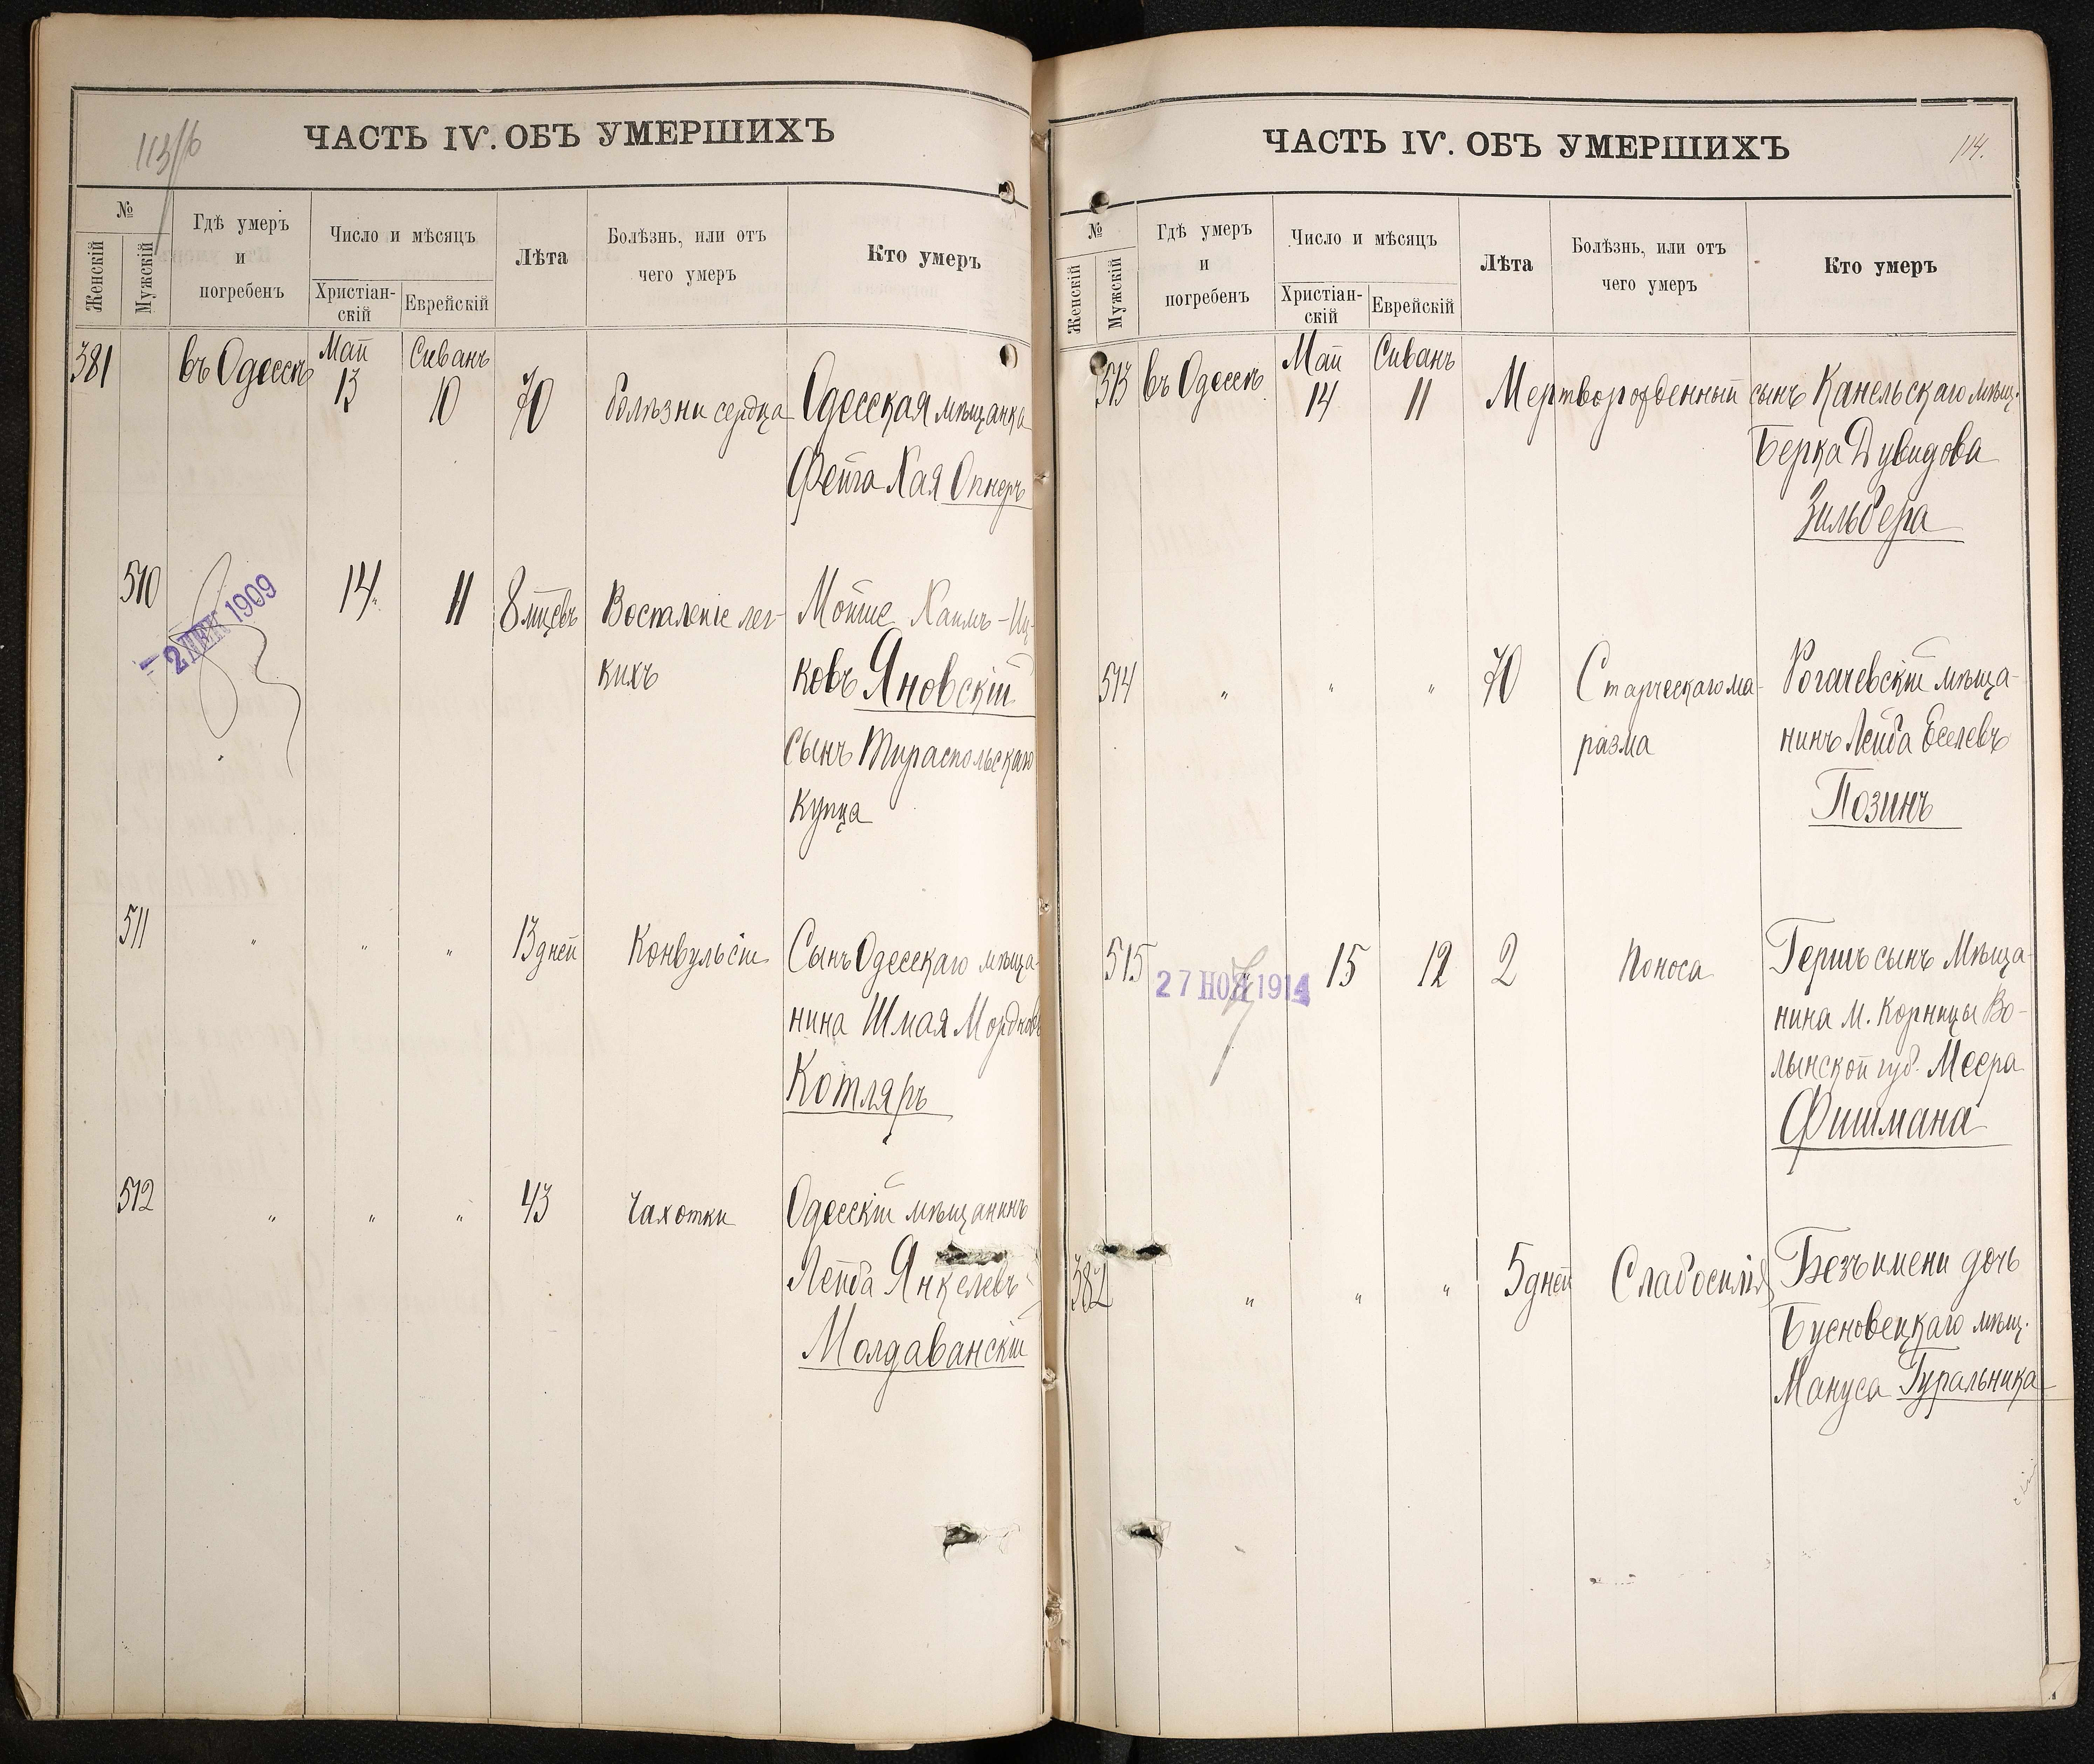 113/6
ЧАСТЬ IV. ОБЪ УМЕРШИХЪ
№
Женскій
Мужскій
Гдѣ умеръ
и
погребенъ
Число и мѣсяцъ
Христіан-
скій
Еврейскій
Лѣта
Болѣзнь, или отъ
чего умеръ
Кто умеръ
381 въ Одессѣ Май Сиванъ
13 10 70 болѣзни сердца Одесская мѣщанка
Фейга Хая Опнеръ
510 14 11 8 мцевъ Воспаленіе лег-
кихъ
2 ДЕК 1909
Мойше Хаимъ-Иц-
ковъ Яновскій
сынъ Тираспольскаго
купца
511 " " " 13 дней Конвульсіи Сынъ Одесскаго мѣща-
нина Шмая Мордковъ
Котляръ
512 " " " 43 Чахотки Одесскій мѣщанинъ
Лейба Янкелевъ
Молдаванскій
ЧАСТЬ IV. ОБЪ УМЕРШИХЪ
114.
№
Женскій
Мужскій
Гдѣ умеръ
и
погребенъ
Число и мѣсяцъ
Христіан-
скій
Еврейскій
Лѣта
Болѣзнь, или отъ
чего умеръ
Кто умеръ
513 въ Одессѣ Май Сиванъ
14 11 Мертворожденный сынъ Канельскаго мѣщ.
Берка Дувидова
Зильбера
514 " " " 70 Старческаго ма-
разма
Рогачевскій мѣща-
нинъ Лейба Еселевъ
Позинъ
515 27 НОЯ 1914 15 12 2 Поноса Гершъ сынъ Мѣща-
нина м. Корницы Во-
лынской губ. Меера
Фишмана
382 " " " 5 дней Слабосилія Безъ имени дочь
Бусновецкаго мѣщ.
Мануса Гуральника